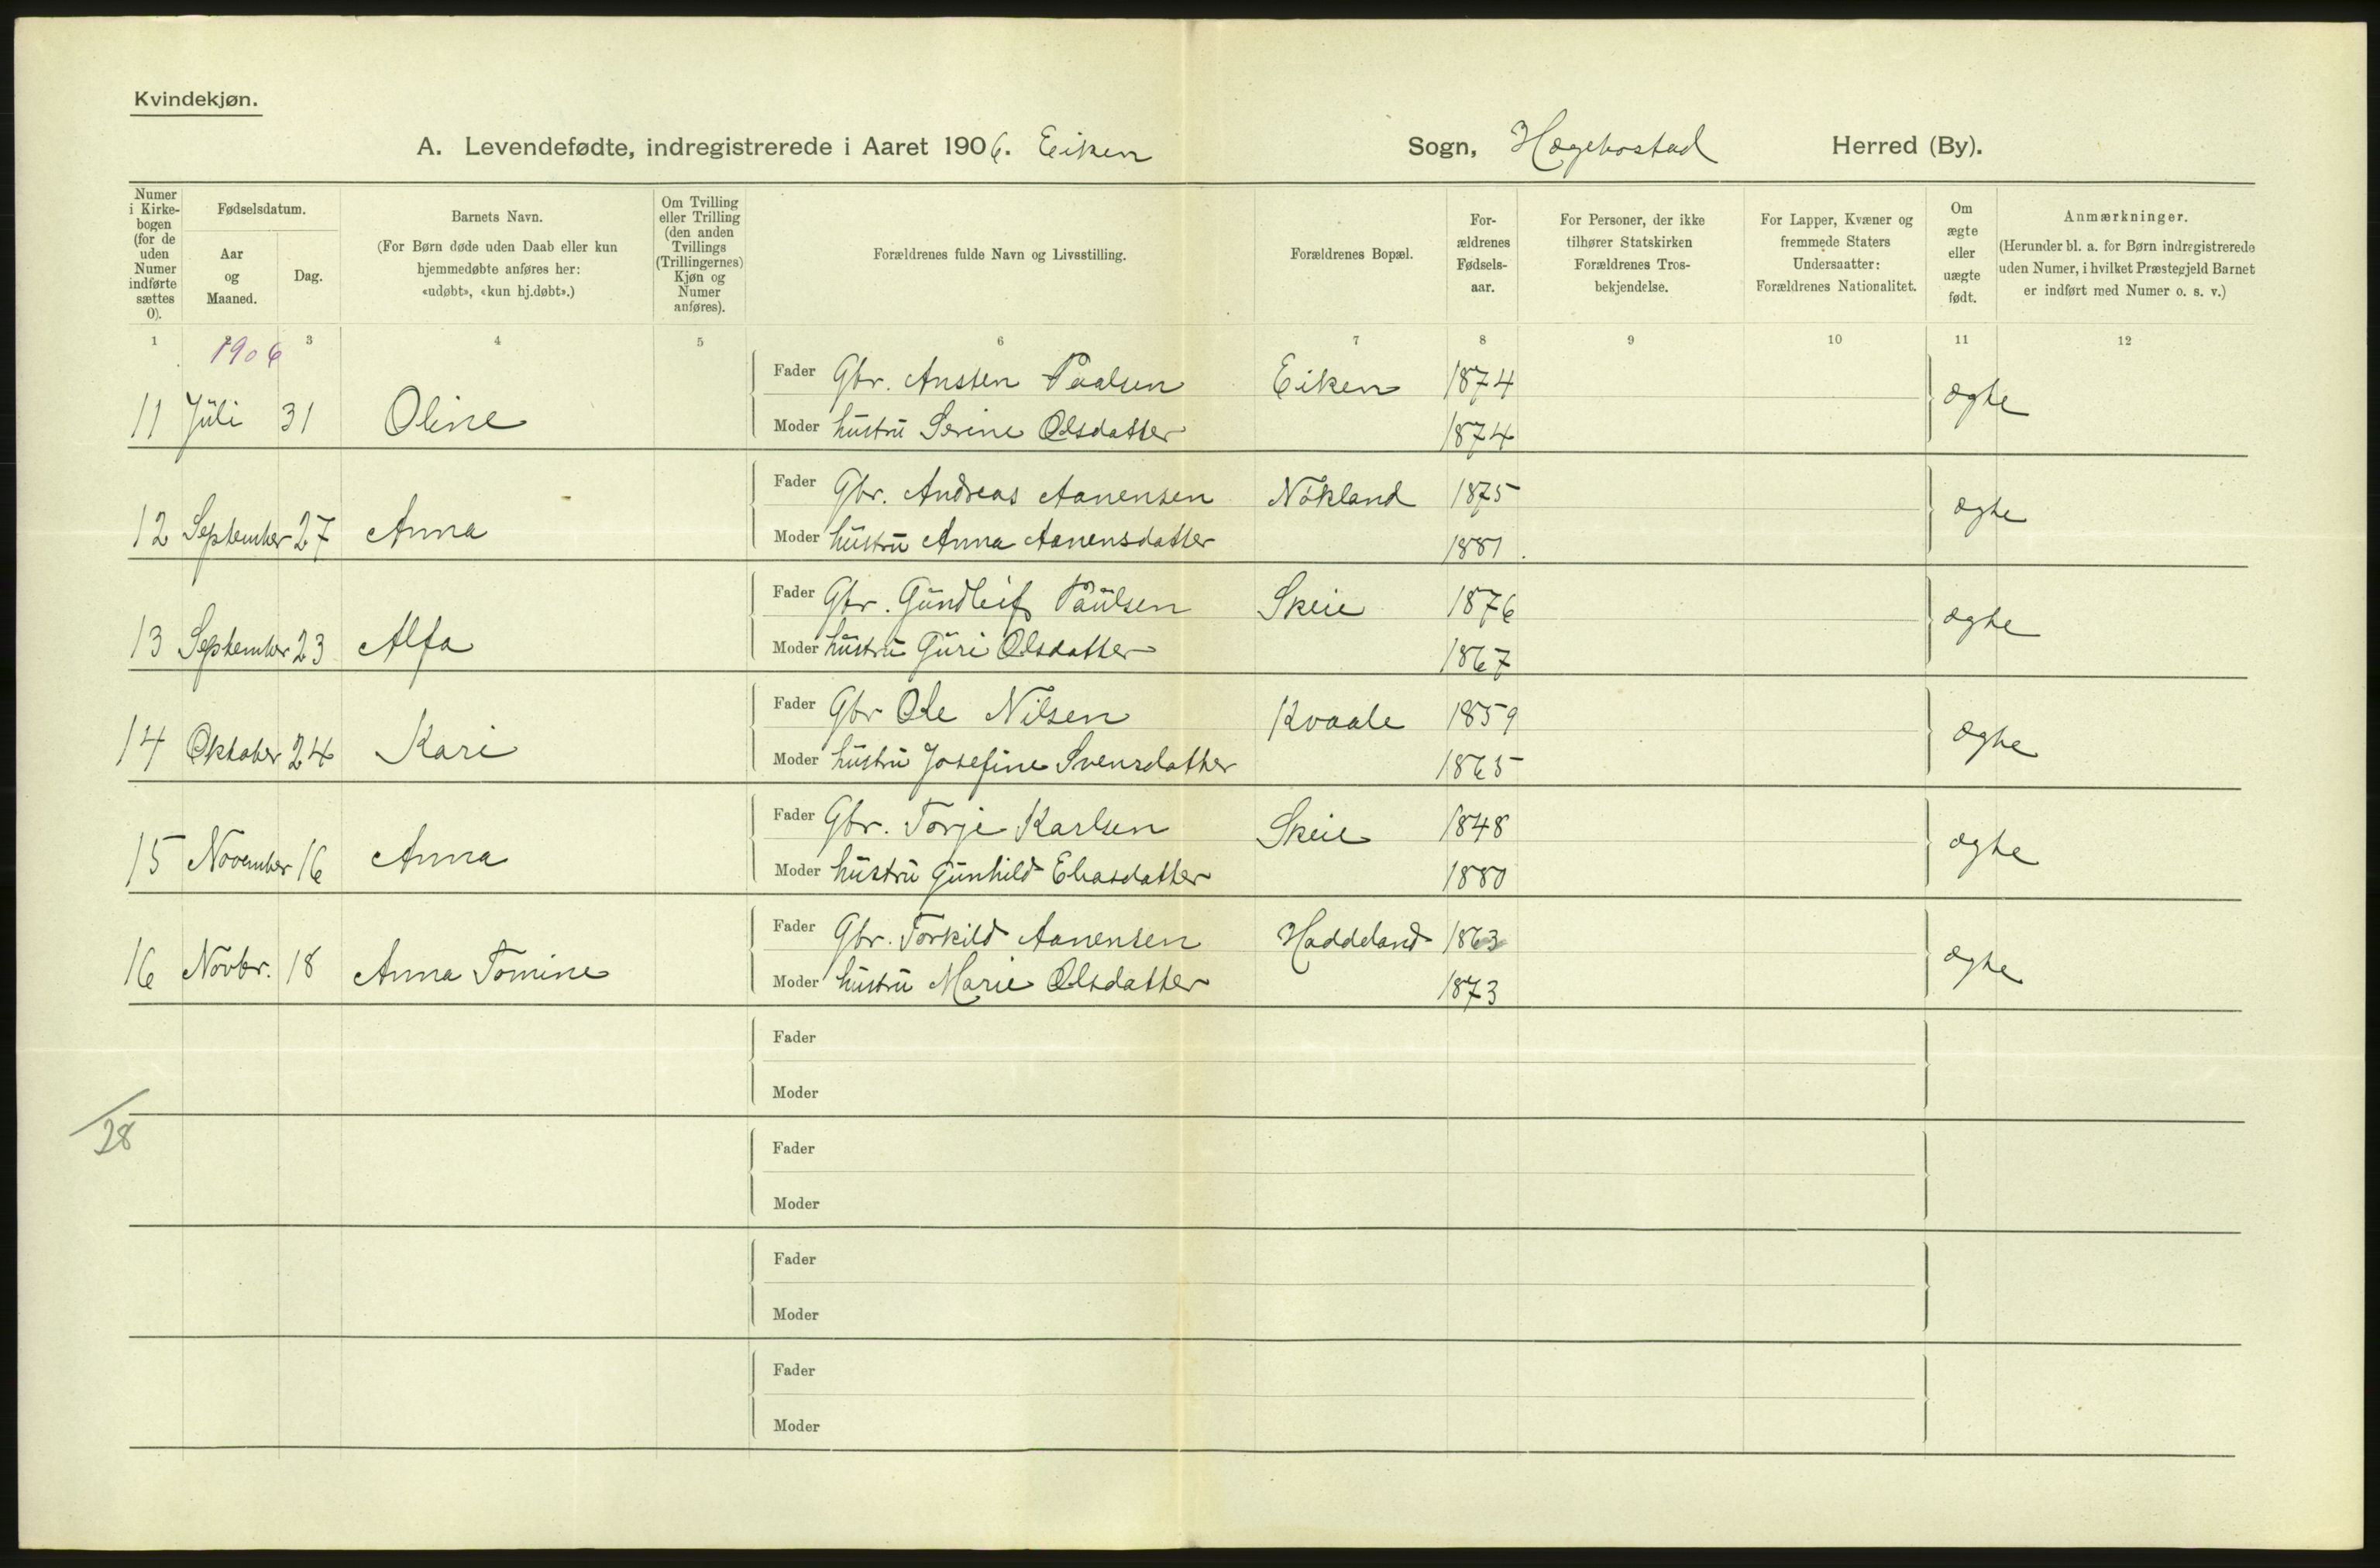 Kvindekjøn.
A. Levendefødte, indregistrerede i Aaret 1906. Eiken Sogn, Hægebostad Herred (By).
Numer i Kirkebogen (for de uden Numer indførte sættes 0).
Fødselsdatum.
Aar og Maaned.
Dag.
Barnets Navn.
(For Børn døde uden Daab eller kun hjemmedøbte anføres her: «udøbt», «kun hj.døbt».)
Om Tvilling eller Trilling (den anden Tvillings (Trillingernes) Kjøn og Numer anføres).
Forældrenes fulde Navn og Livsstilling.
Forældrenes Bopæl.
Forældrenes Fødselsaar.
For Personer, der ikke tilhører Statskirken Forældrenes Trosbekjendelse.
For Lapper, Kvæner og fremmede Staters Undersaatter: Forældrenes Nationalitet.
Om ægte eller uægte født.
Anmærkninger.
(Herunder bl. a. for Børn indregistrerede uden Numer, i hvilket Præstegjeld Barnet er indført med Numer o. s. v.)
1 2 3 4 5 6 7 8 9 10 11 12
1906
Fader Gbr. Ansten Paalsen Eiken 1874
11 Jüli 31 Oline ægte
Moder hüstrü Serine Olsdatter 1874
Fader Gbr. Andreas Aanensen Nökland 1875
12 September 27 Anna ægte
Moder hüstrü Anna Aanensdatter 1881
Fader Gbr. Gündleif Paülsen Skeie 1876
13 September 23 Alfa ægte
Moder hüstrü Güri Olsdatter 1867
Fader Gbr Ole Nilsen Kvaale 1859
14 Oktober 24 Kari ægte
Moder hüstrü Josefine Svensdatter 1865
Fader Gbr. Torje Karlsen Skeie 1848
15 November 16 Anna ægte
Moder hüstrü Günhild Eliasdatter 1880
Fader Gbr. Torkild Aanensen Haddeland 1863
16 Novbr. 18 Anna Tomine ægte
Moder hüstrü Marie Olsdatter 1873
Fader
Moder
28
Fader
Moder
Fader
Moder
Fader
Moder